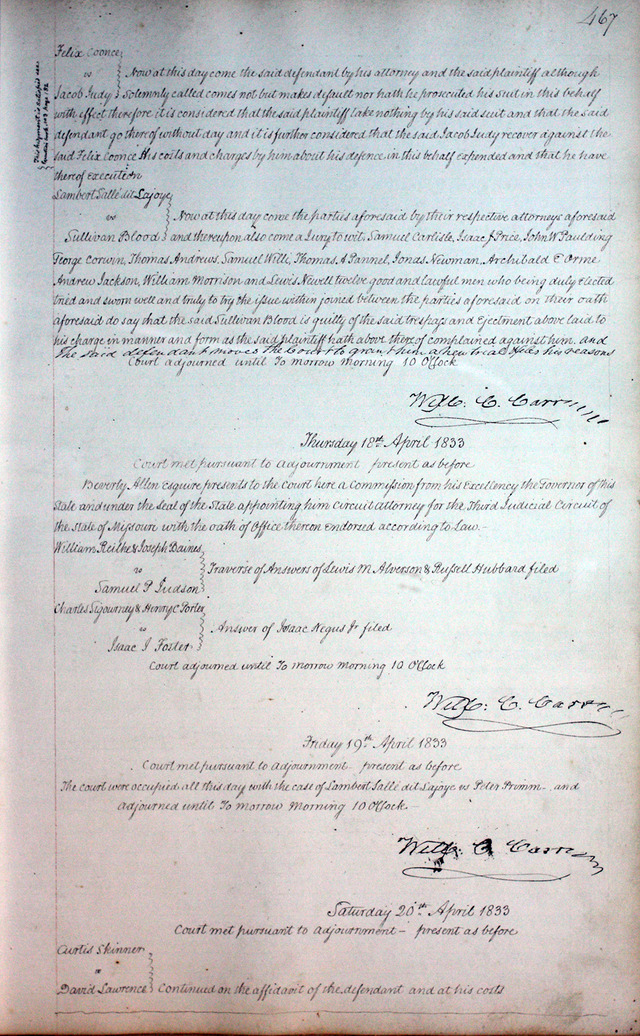 467
Felix Coonce
vs
Now at this day come the said defendant by his attorney and the said plaintiff although
Jacob Judy Solemnly called comes not but makes default nor hath he prosecuted his suit in this behalf
with effect therefore it is considered that the said plaintiff take nothing by his said suit and that the said
defendant go thereof without day and it is further considered that the said Jacob Judy recover against the
said Felix Coonce His costs and charges by him about his defence in this behalf expended and that he have
thereof execution
This Judgment is satisfied see
Lambert Sallé dit Lajoye
vs
Now at this day come the parties aforesaid by their respective attorneys aforesaid
Sullivan Blood and thereupon also come a Jury to wit, Samuel Carlisle, Isaac J Price, John W Paulding
George Corwin, Thomas Andrews, Samuel Wells, Thomas A Pannel, Jonas Newman, Archibald E Orme
Andrew Jackson, William Morrison and Lewis Newell twelve good and lawful men who being duly elected
tried and sworn well and truly to try the issue within joined between the parties aforesaid on their oath
aforesaid do say that the said Sullivan Blood is guilty of the said trespass and Ejectment above laid to
his charge in manner and form as the said plaintiff hath above thereof complained against him. and
The said defendant moves the Court to grant him a new trial files his reasons
Court adjourned until To morrow Morning 10 O'Clock
Will: C. Carr
Thursday 18th April 1833
Court met pursuant to adjournment present as before
Beverly Allen Esquire presents to the court here a Commission from his Excellency the Governor of this
State and under the Seal of the State appointing him Circuit attorney for the Third Judicial Circuit of
the State of Missouri with the oath of Office thereon Endorsed according to Law.—
William Reilke & Joseph Baines
vs
Traverse of Answers of Lewis M. Alverson & Russell Hubbard filed
Samuel P Judson
Charles Sigourney & Henry C Porter
vs
Answer of Isaac Negus Jr filed
Isaac I Foster
Court adjourned until To morrow Morning 10 O'Clock
Will: C. Carr
Friday 19th April 1833
Court met pursuant to adjournment present as before
The court were occupied all this day with the case of Lambert Sallé dit Lajoye vs Peter Primm and
adjourned until To morrow Morning 10 O'Clock
Will: C Carr
Saturday 20th April 1833
Court met pursuant to adjournment – present as before
Curtis Skinner
vs
David Lawrence Continued on the affidavit of the defendant and at his costs